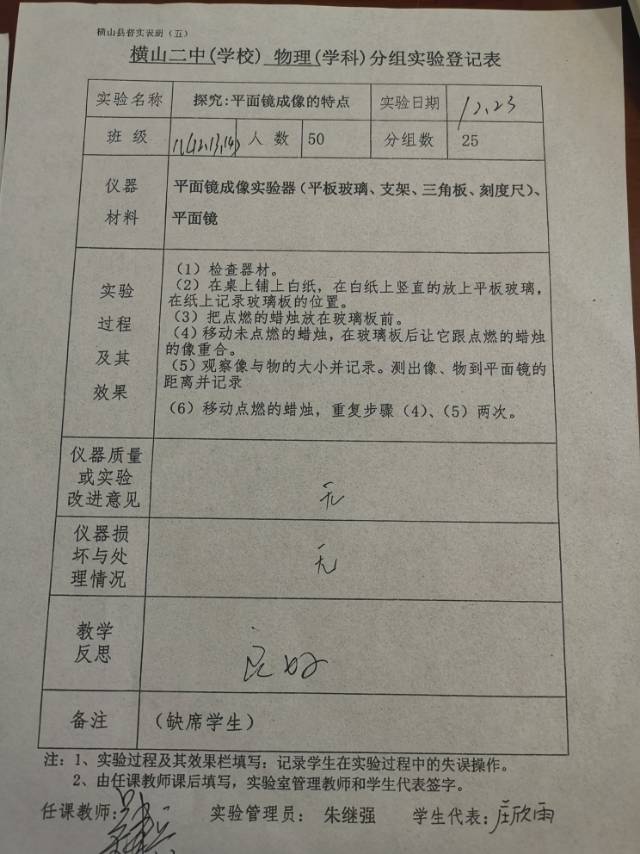 横山二中(学校) 物理(学科)分组实验登记表
实验名称 探究:平面镜成像的特点 实验日期 12.23
班级 人数 50 分组数 25
仪器 平面镜成像实验器(平板玻璃、支架、三角板、刻度尺)、
材料 平面镜
实验过程及其效果
(1)检查器材。
(2)在桌上铺上白纸,在白纸上竖直的放上平板玻璃,
在纸上记录玻璃板的位置。
(3)把点燃的蜡烛放在玻璃板前。
(4)移动未点燃的蜡烛,在玻璃板后让它跟点燃的蜡烛
的像重合。
(5)观察像与物的大小并记录。测出像、物到平面镜的
距离并记录
(6)移动点燃的蜡烛,重复步骤(4)、(5)两次。
仪器质量
或实验 无
改进意见
仪器损
坏与处 无
理情况
教学
反思 良好
备注 (缺席学生)
注:1、实验过程及其效果栏填写:记录学生在实验过程中的失误操作。
2、由任课教师课后填写,实验室管理教师和学生代表签字。
任课教师: 实验管理员: 朱继强 学生代表:庄欣雨